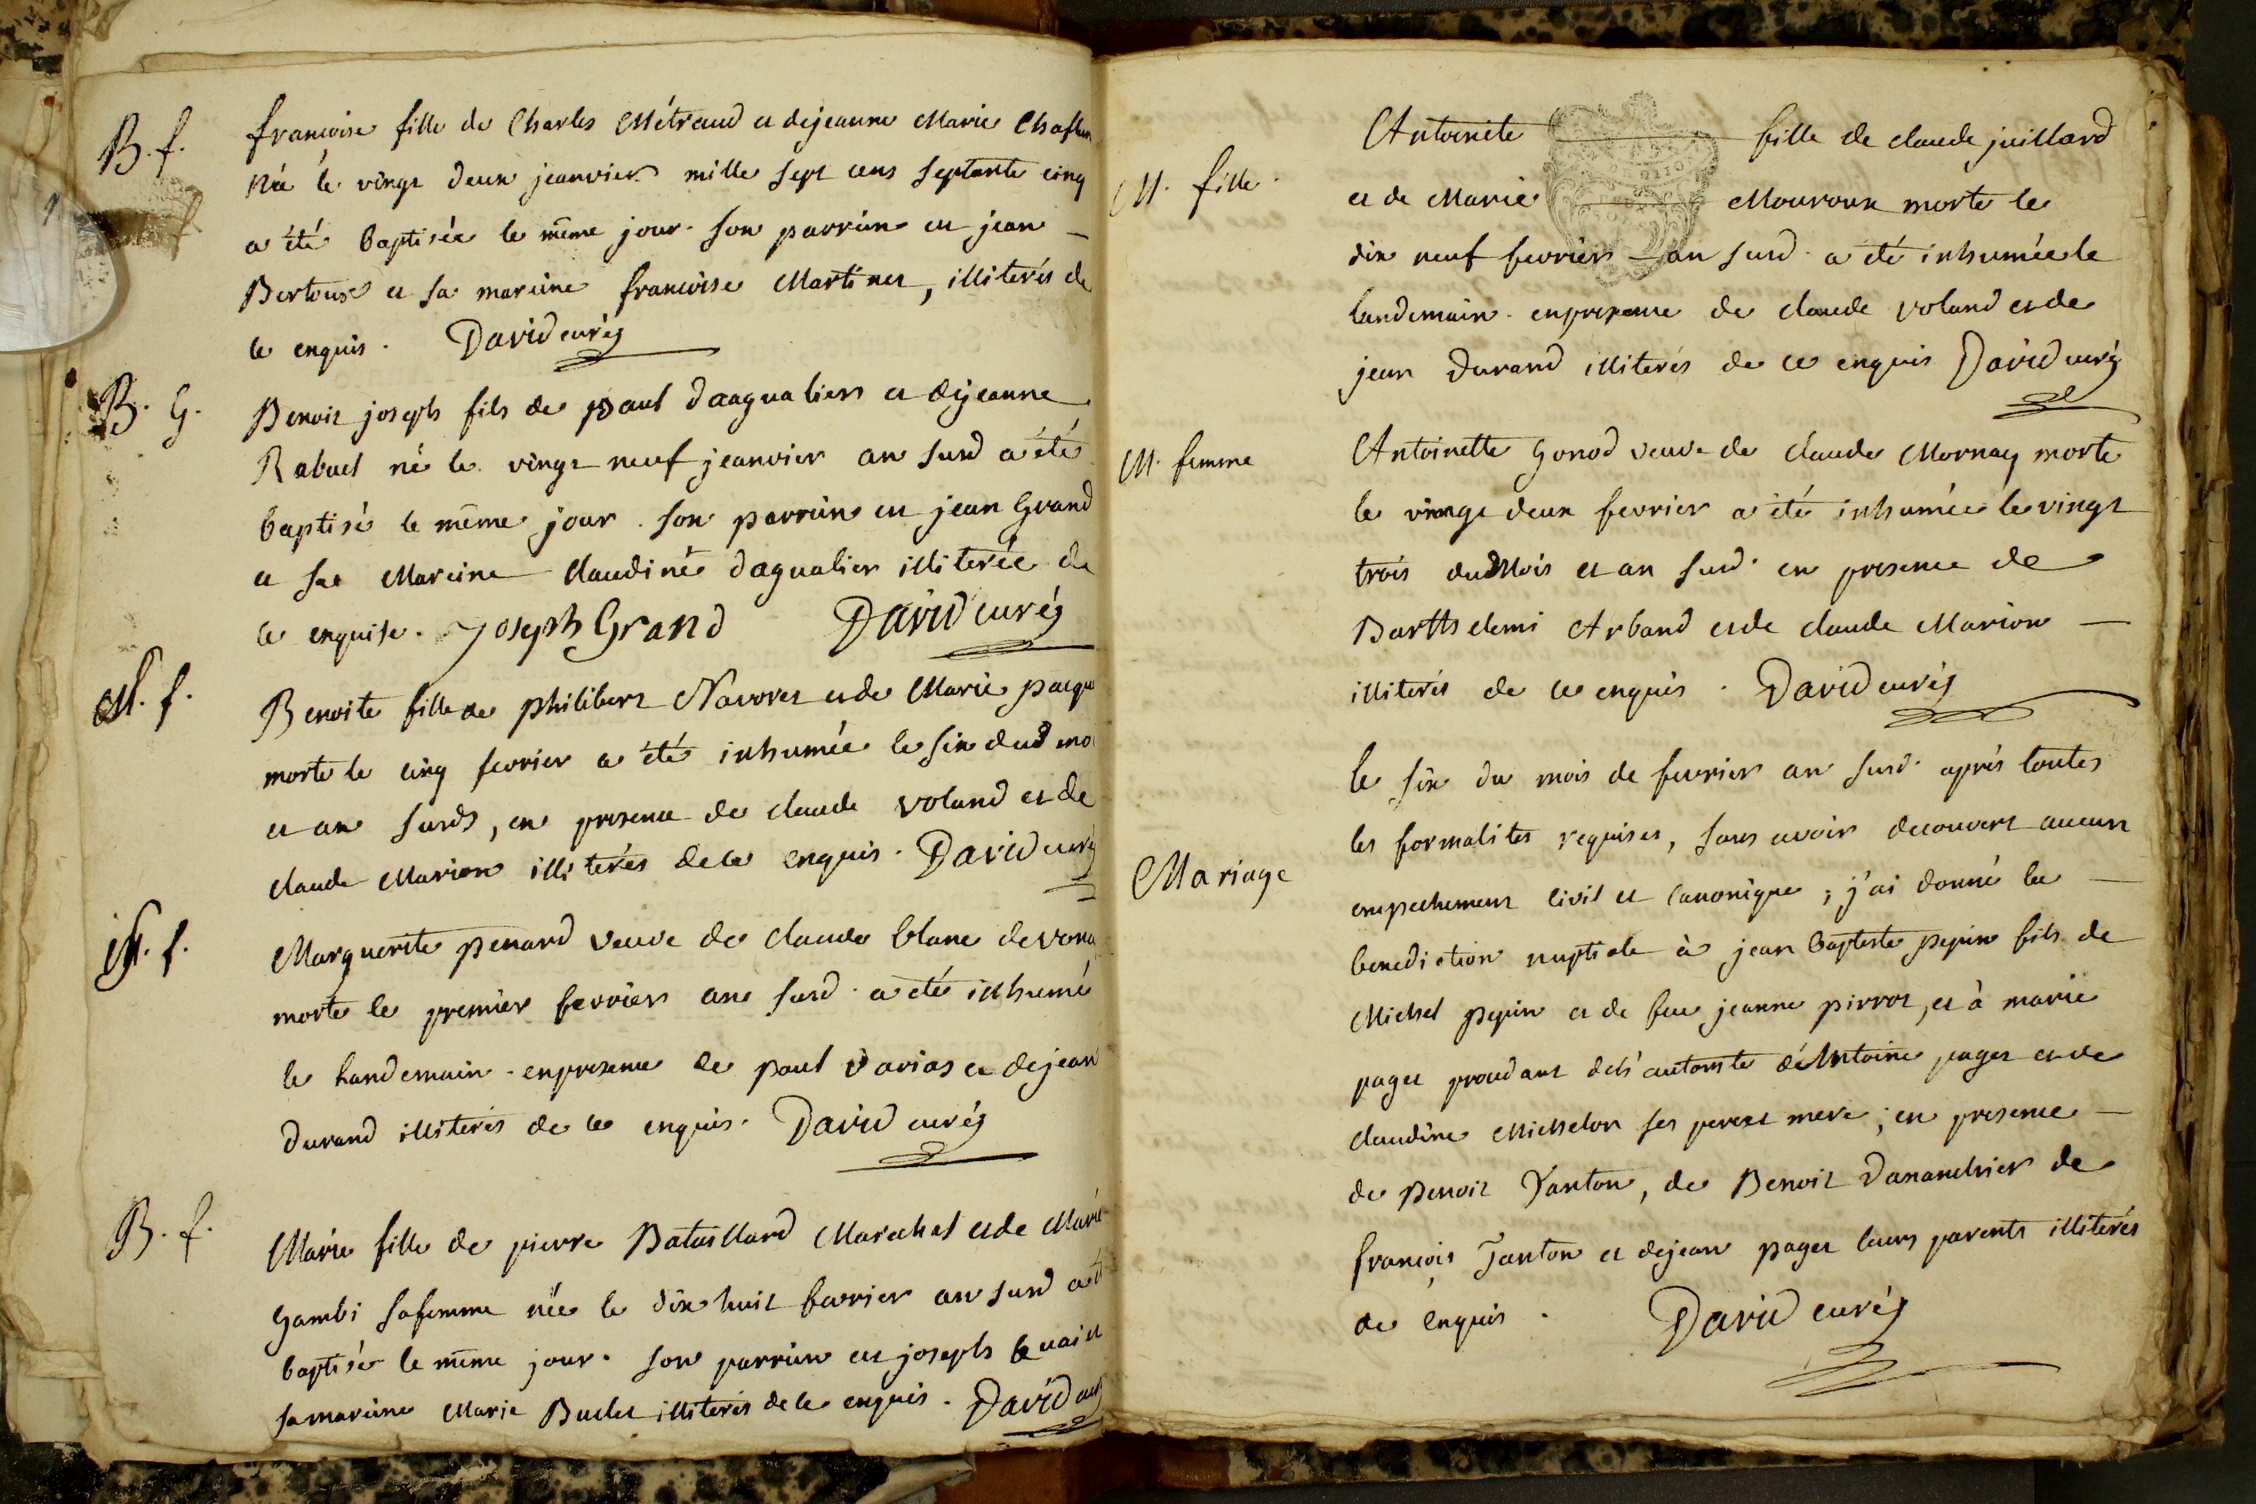 B. f.
francoise fille de Charles Métraud et de jeanne Marie
Née le vingt deux jeanvier mille sept cens septante cinq
a été baptisée le même jour. son parrain est jean
et sa mareine francoise Martinet, illiterés de
ce enquis. David curé
B. G.
Benoit joseph fils de paul daagualiers et de jeanne
Rabuel né le vingt neuf jeanvier an susd a été
baptisé le même jour. son parrain est jean Grand
et sa Mareine Claudine dagualier illiterée de
ce enquise. Joseph Grand David curé
M. f.
Benoite fille de philibert Navoret et de Marie
morte le cinq fevrier a été inhumée le six dud
et an susds, en presence de claude voland et de
claude Marion illiterés de ce enquis. David curé
M. f.
Marguerite penard veuve de claude blanc de
morte le premier fevrier an susd. a été inhumé
le landemain. en presence de paul varias et de jean
durand illiterés de ce enquis. David curé
B. f.
Marie fille de pierre Bataillard Marechal et de Marie
Gambi sa femme née le dix huit fevrier an susd
baptisée le même jour. son parrain est joseph
sa mareine Marie Buclet illiterés de ce enquis. David
M. fille
Antoinete fille de claude juillard
et de Marie Mouroux morte le
dix neuf fevrier an susd. a été inhumée le
landemain. en presence de claude voland et de
jean durand illiterés de ce enquis David curé
M. femme
Antoinette Gonod veuve de Claude Mornay morte
le vingt deux fevrier a été inhumée le vingt
trois dud Mois et an susd. en presence de
Barthelemi Arband et de claude Marion
illiterés de ce enquis. David curé
Mariage
le six du mois de fevrier an susd. aprés toutes
les formalites requises, sans avoir decouvert aucun
empechement civil et canonique; j'ai donné la
benediction nuptiale à jean baptiste pepin fils de
Michel pepin et de feue jeanne pirrot, et à marie
paget de l'autorité de Antoine paget et de
claudine Michelon ses pere et mere; en presence
de Benoit Janton, de Benoit Dananchier de
francois Janton et de jean paget leurs parents illiterés
de enquis. David curé